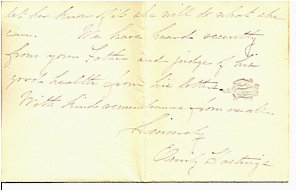 let her know of it she will do what she
can. We have heard recently
from your Father and judge of his
good health from his letter
With kind remembrance from
Sincerely
Emily Hastings